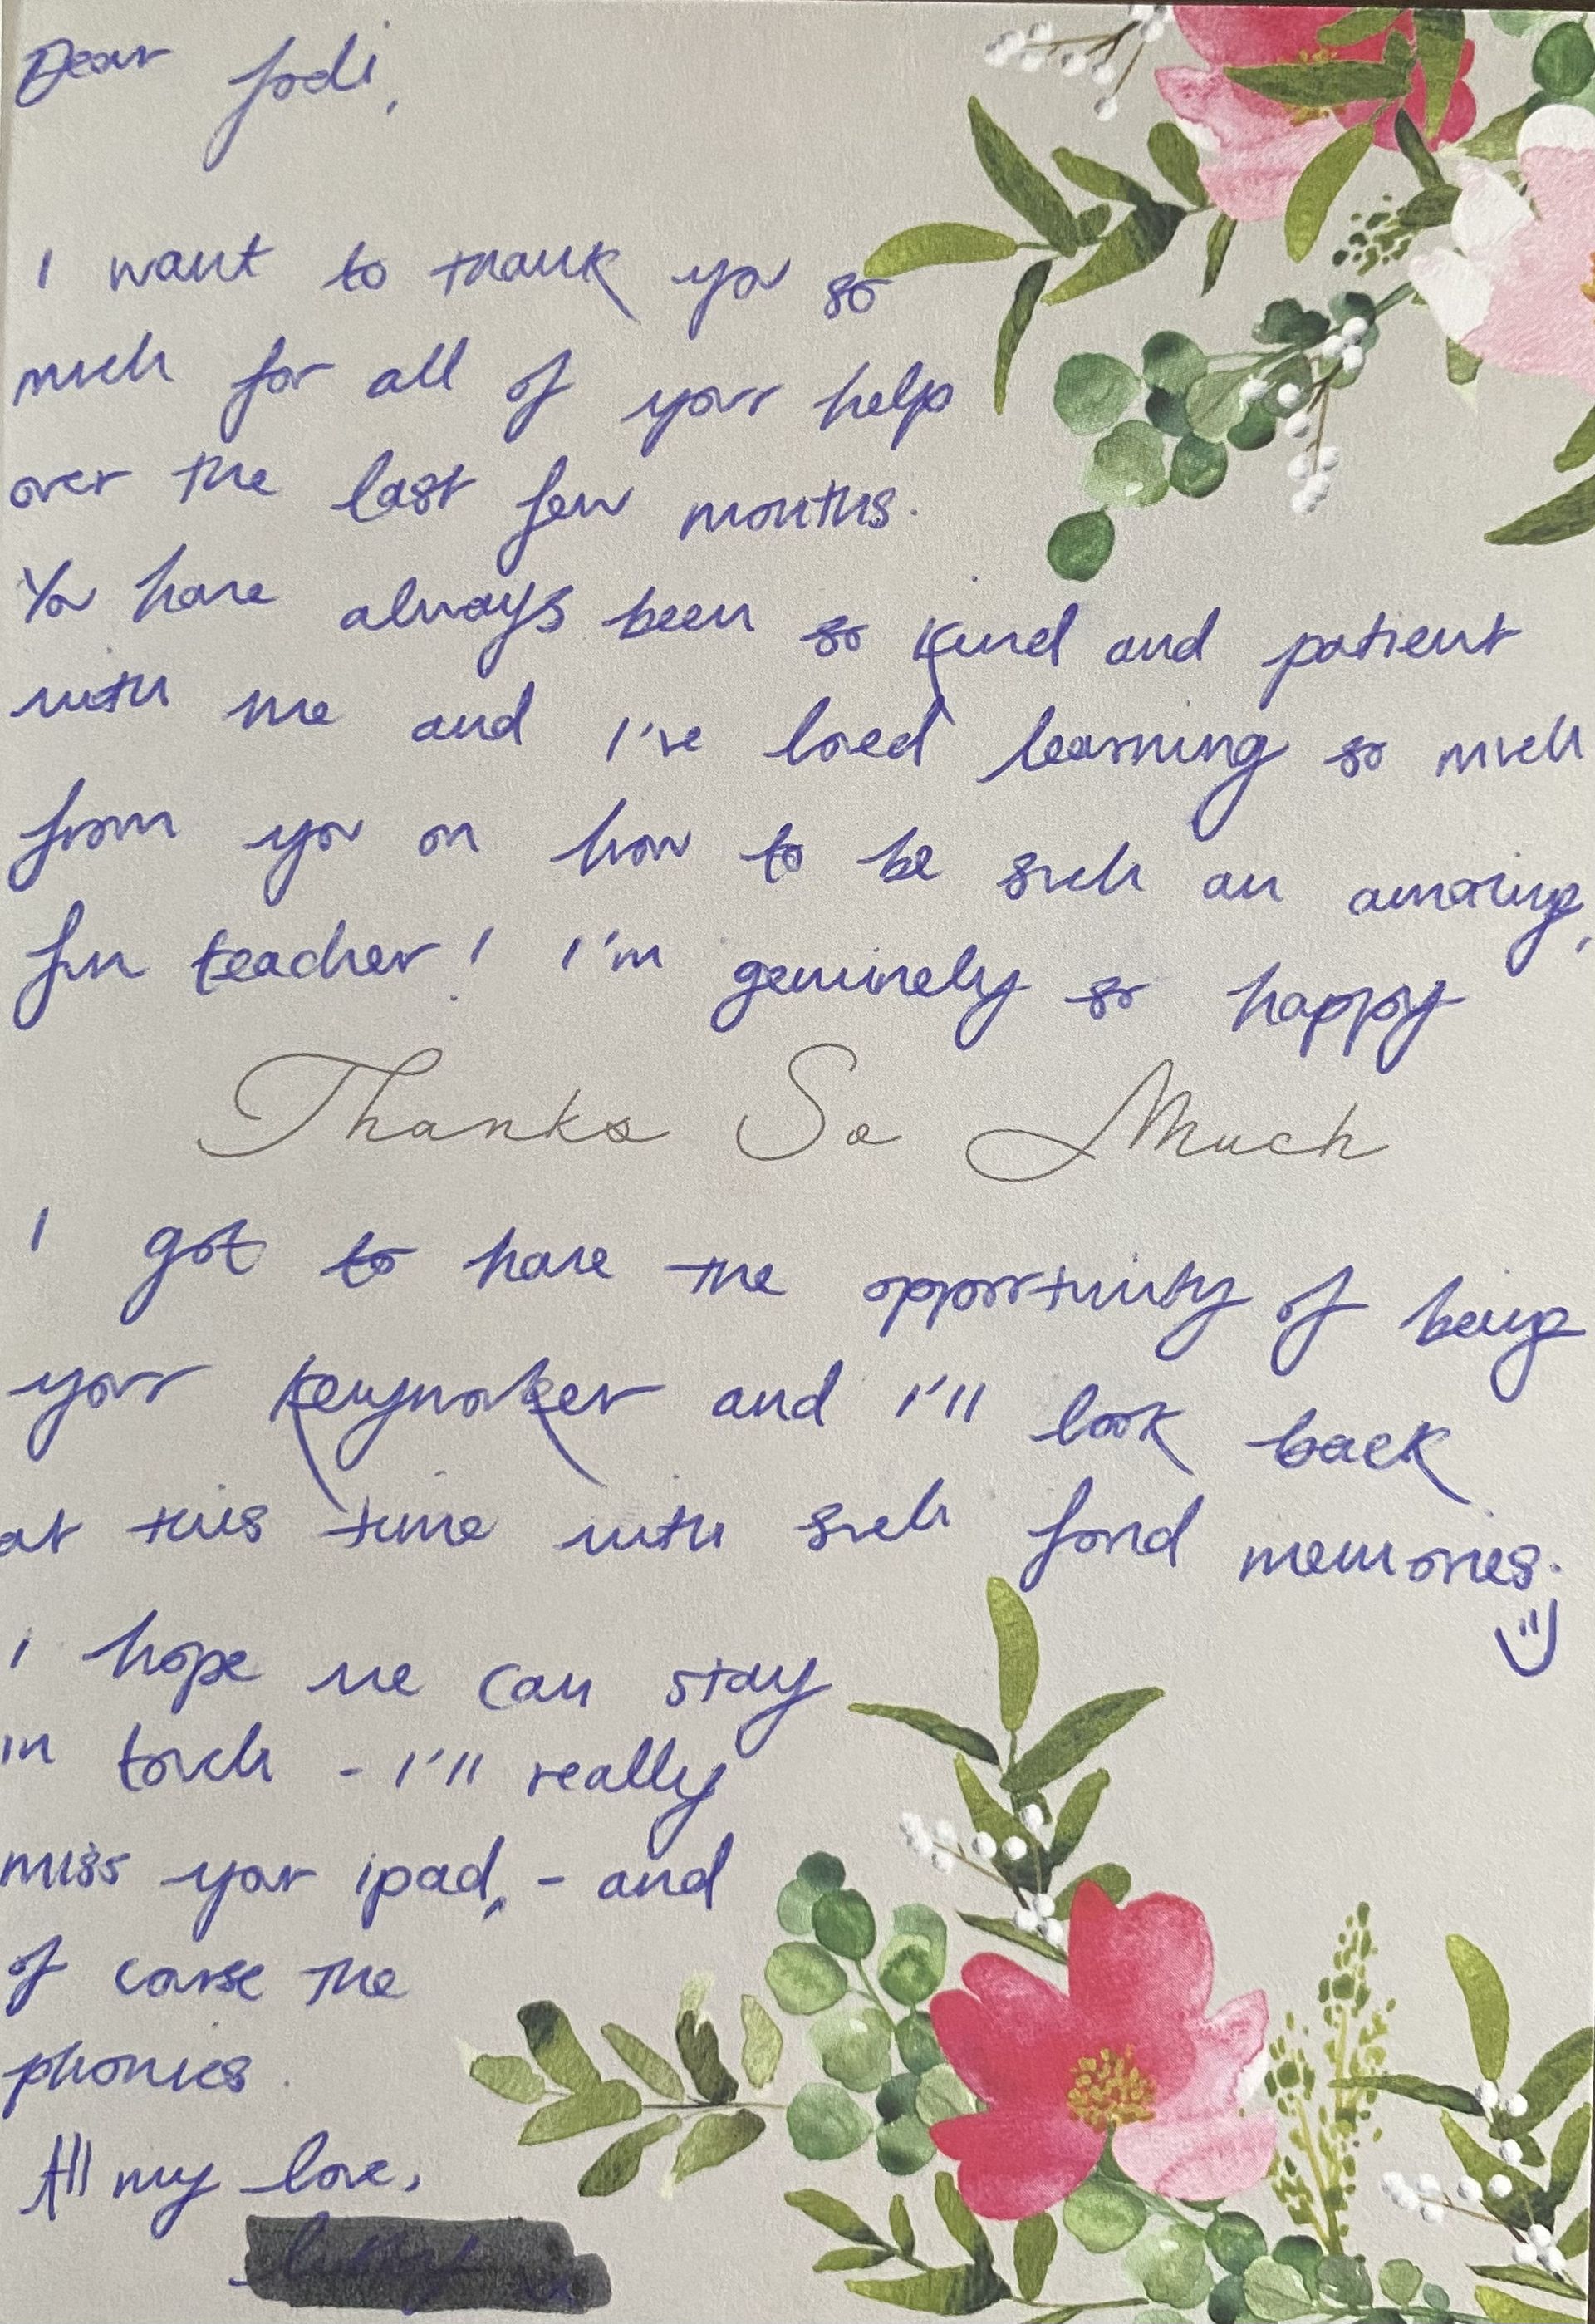 Dear Jodi,
I want to thank you so
much for all of your help
over the last few months.
You have always been so kind and patient
with me and I've loved learning so much
from you on how to be such an amazing,
fun teacher! I'm genuinely so happy
Thanks So Much
I got to have the opportunity of being
your keymaker and I'll look back
at this time with such fond memories.
I hope we can stay
in touch - I'll really
miss your ipad, - and
of course the
phonics.
All my love,